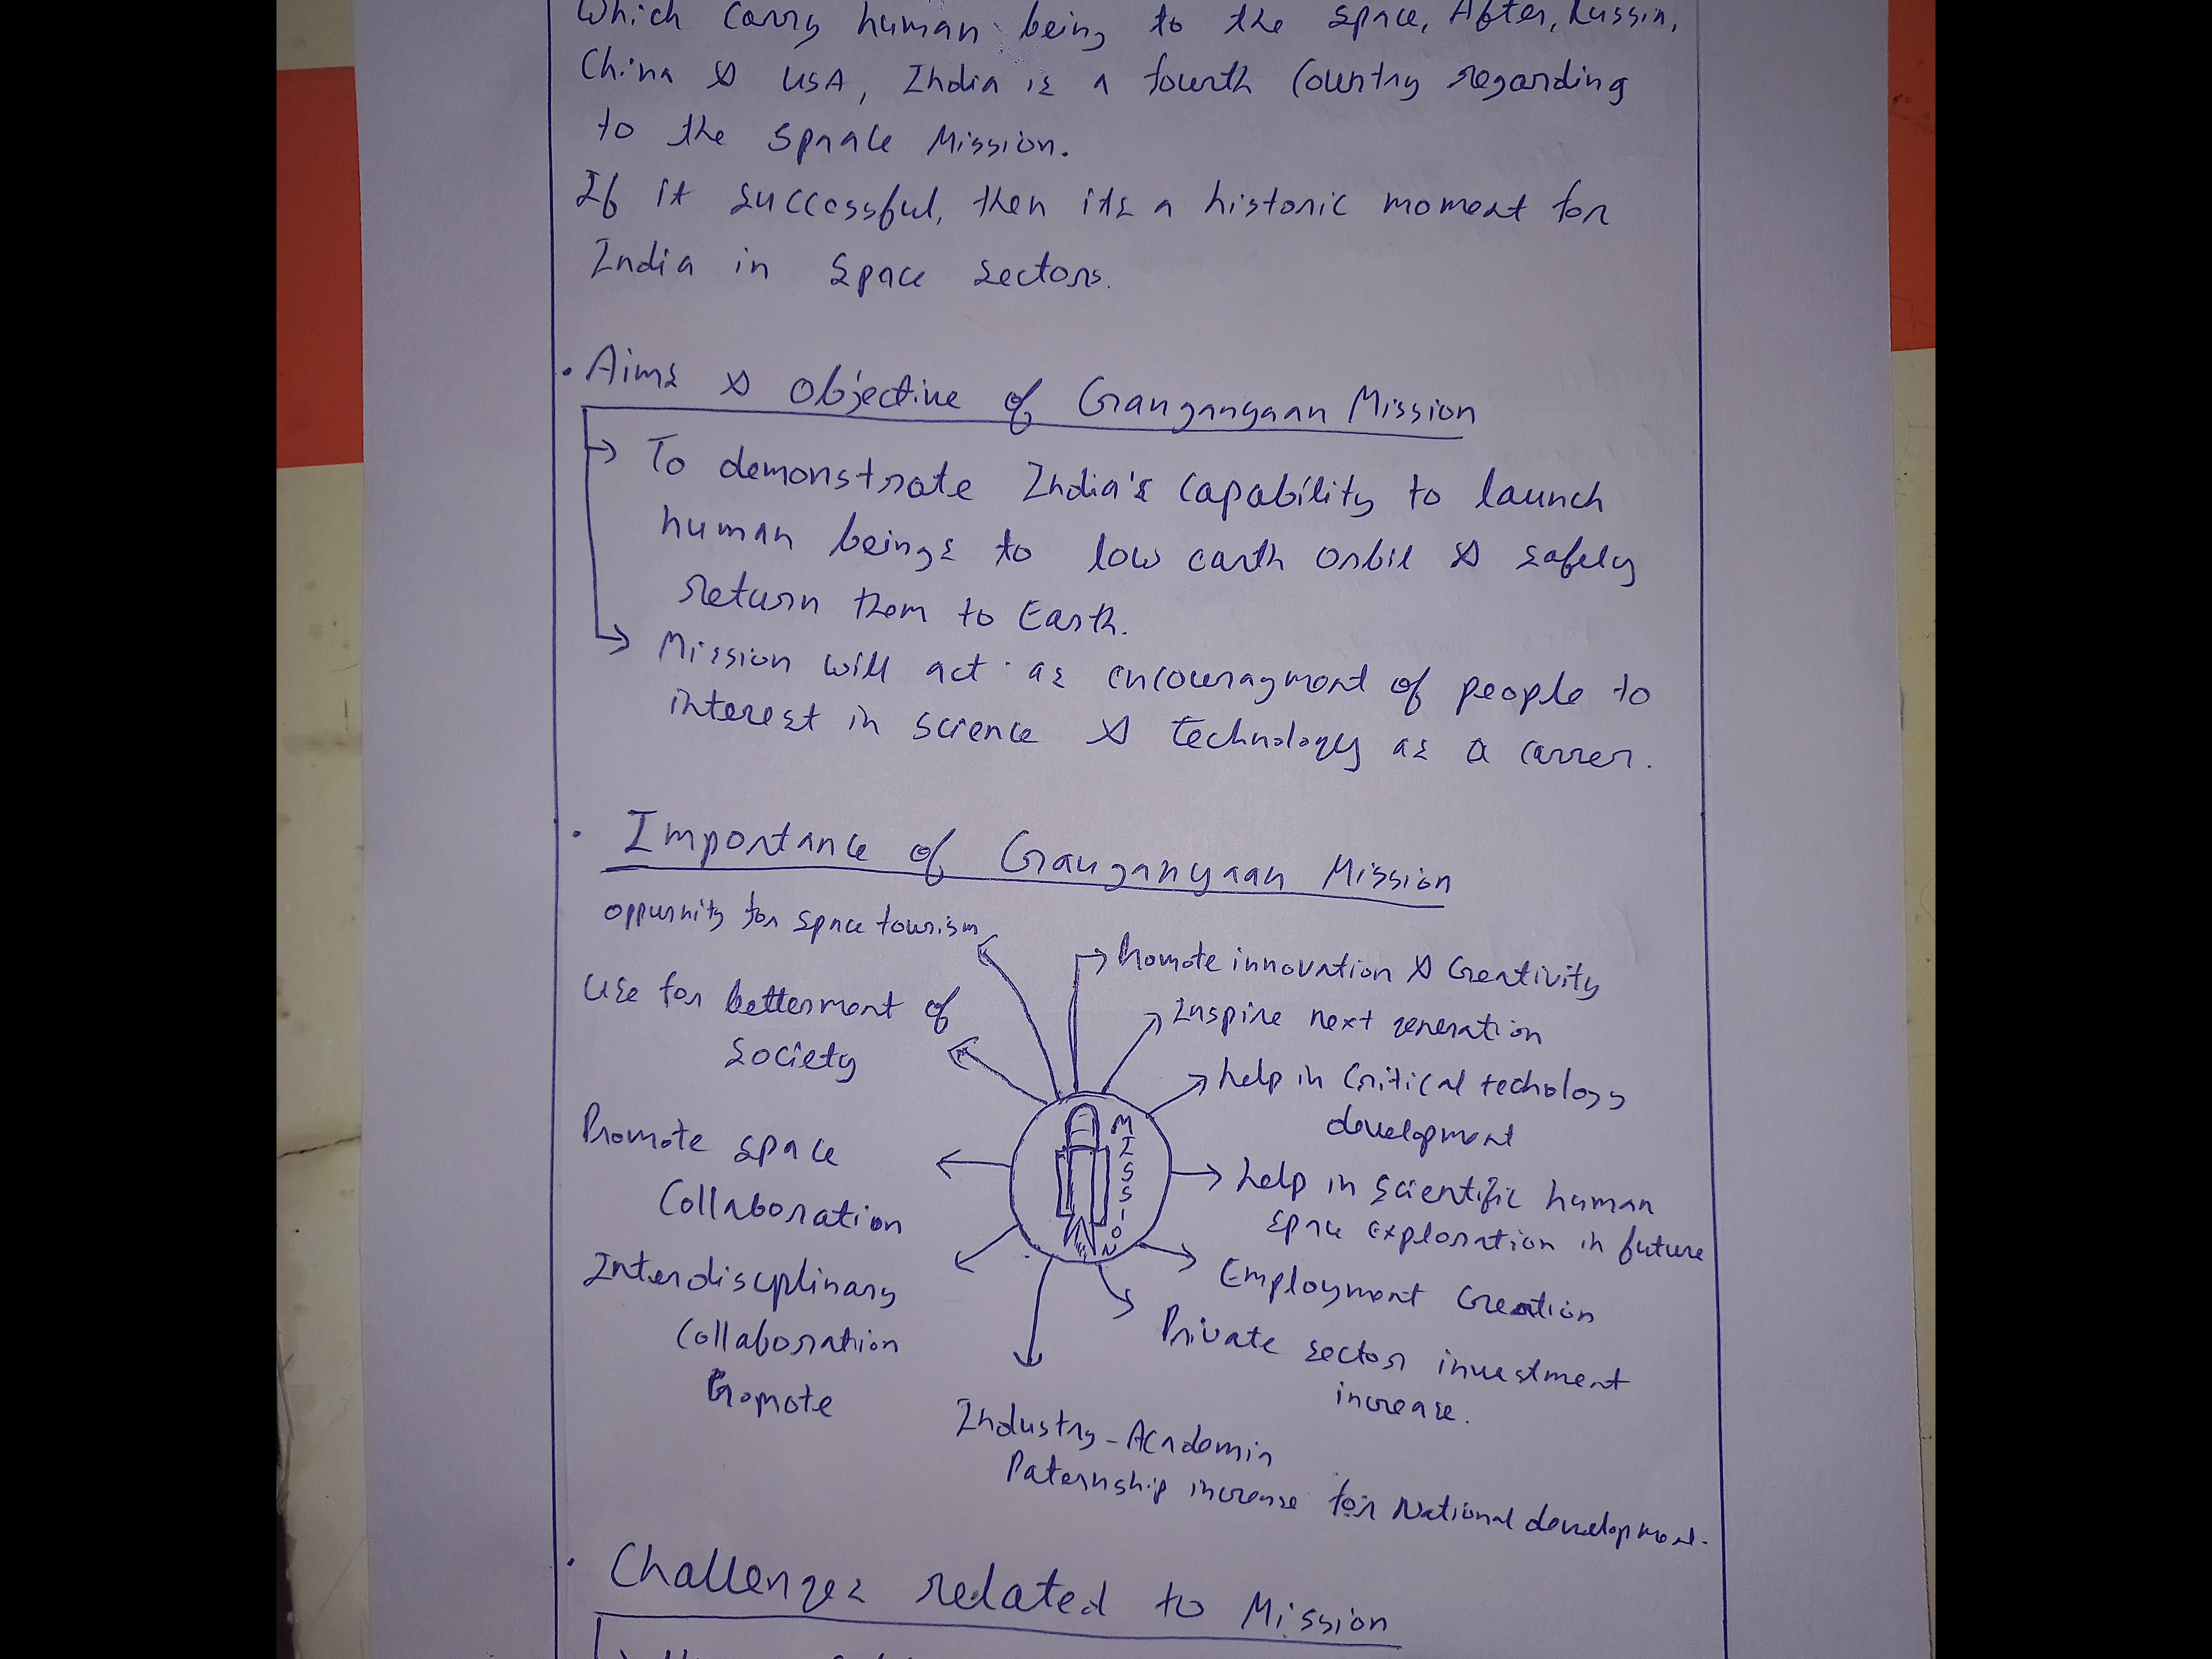 Which carry human being to the space, After, Russia,
China & USA, India is a fourth Country regarding
to the Spaace Mission.
If it successful, then its a historic moment for
India in Space Sectors.
• Aims & Objective of Gaungangaan Mission
→ To demonstrate India's capability to launch
human beings to low earth orbit & safely
return them to Earth.
→ Mission will act as encouragment of people to
interest in science & technology as a carrer.
• Importance of Gauganyaan Mission
oppurnity for space tourism
Promote innovation & Creativity
Use for betterment of
society
Inspire next generation
help in Critical techology
development
MISSION
Promote space
Collaboration
help in scientific human
space exploration in future
Interdisciplinary
Collaboration
Promote
Employment Creation
Private sector investment
increase.
Industry-Academia
Paternship increase for National development.
• Challenges related to Mission